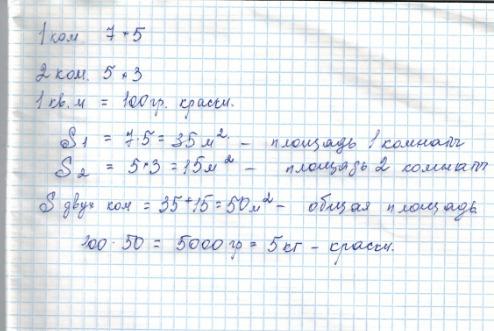 1 ком 7*5
2 ком. 5*3
1 кв.м = 100гр. краски.
S1 = 7·5 = 35 м² - площадь 1 комнаты
S2 = 5*3 = 15 м² - площадь 2 комнаты
S двух ком = 35+15 = 50 м² - общая площадь
100·50 = 5000 гр = 5 кг - краски.